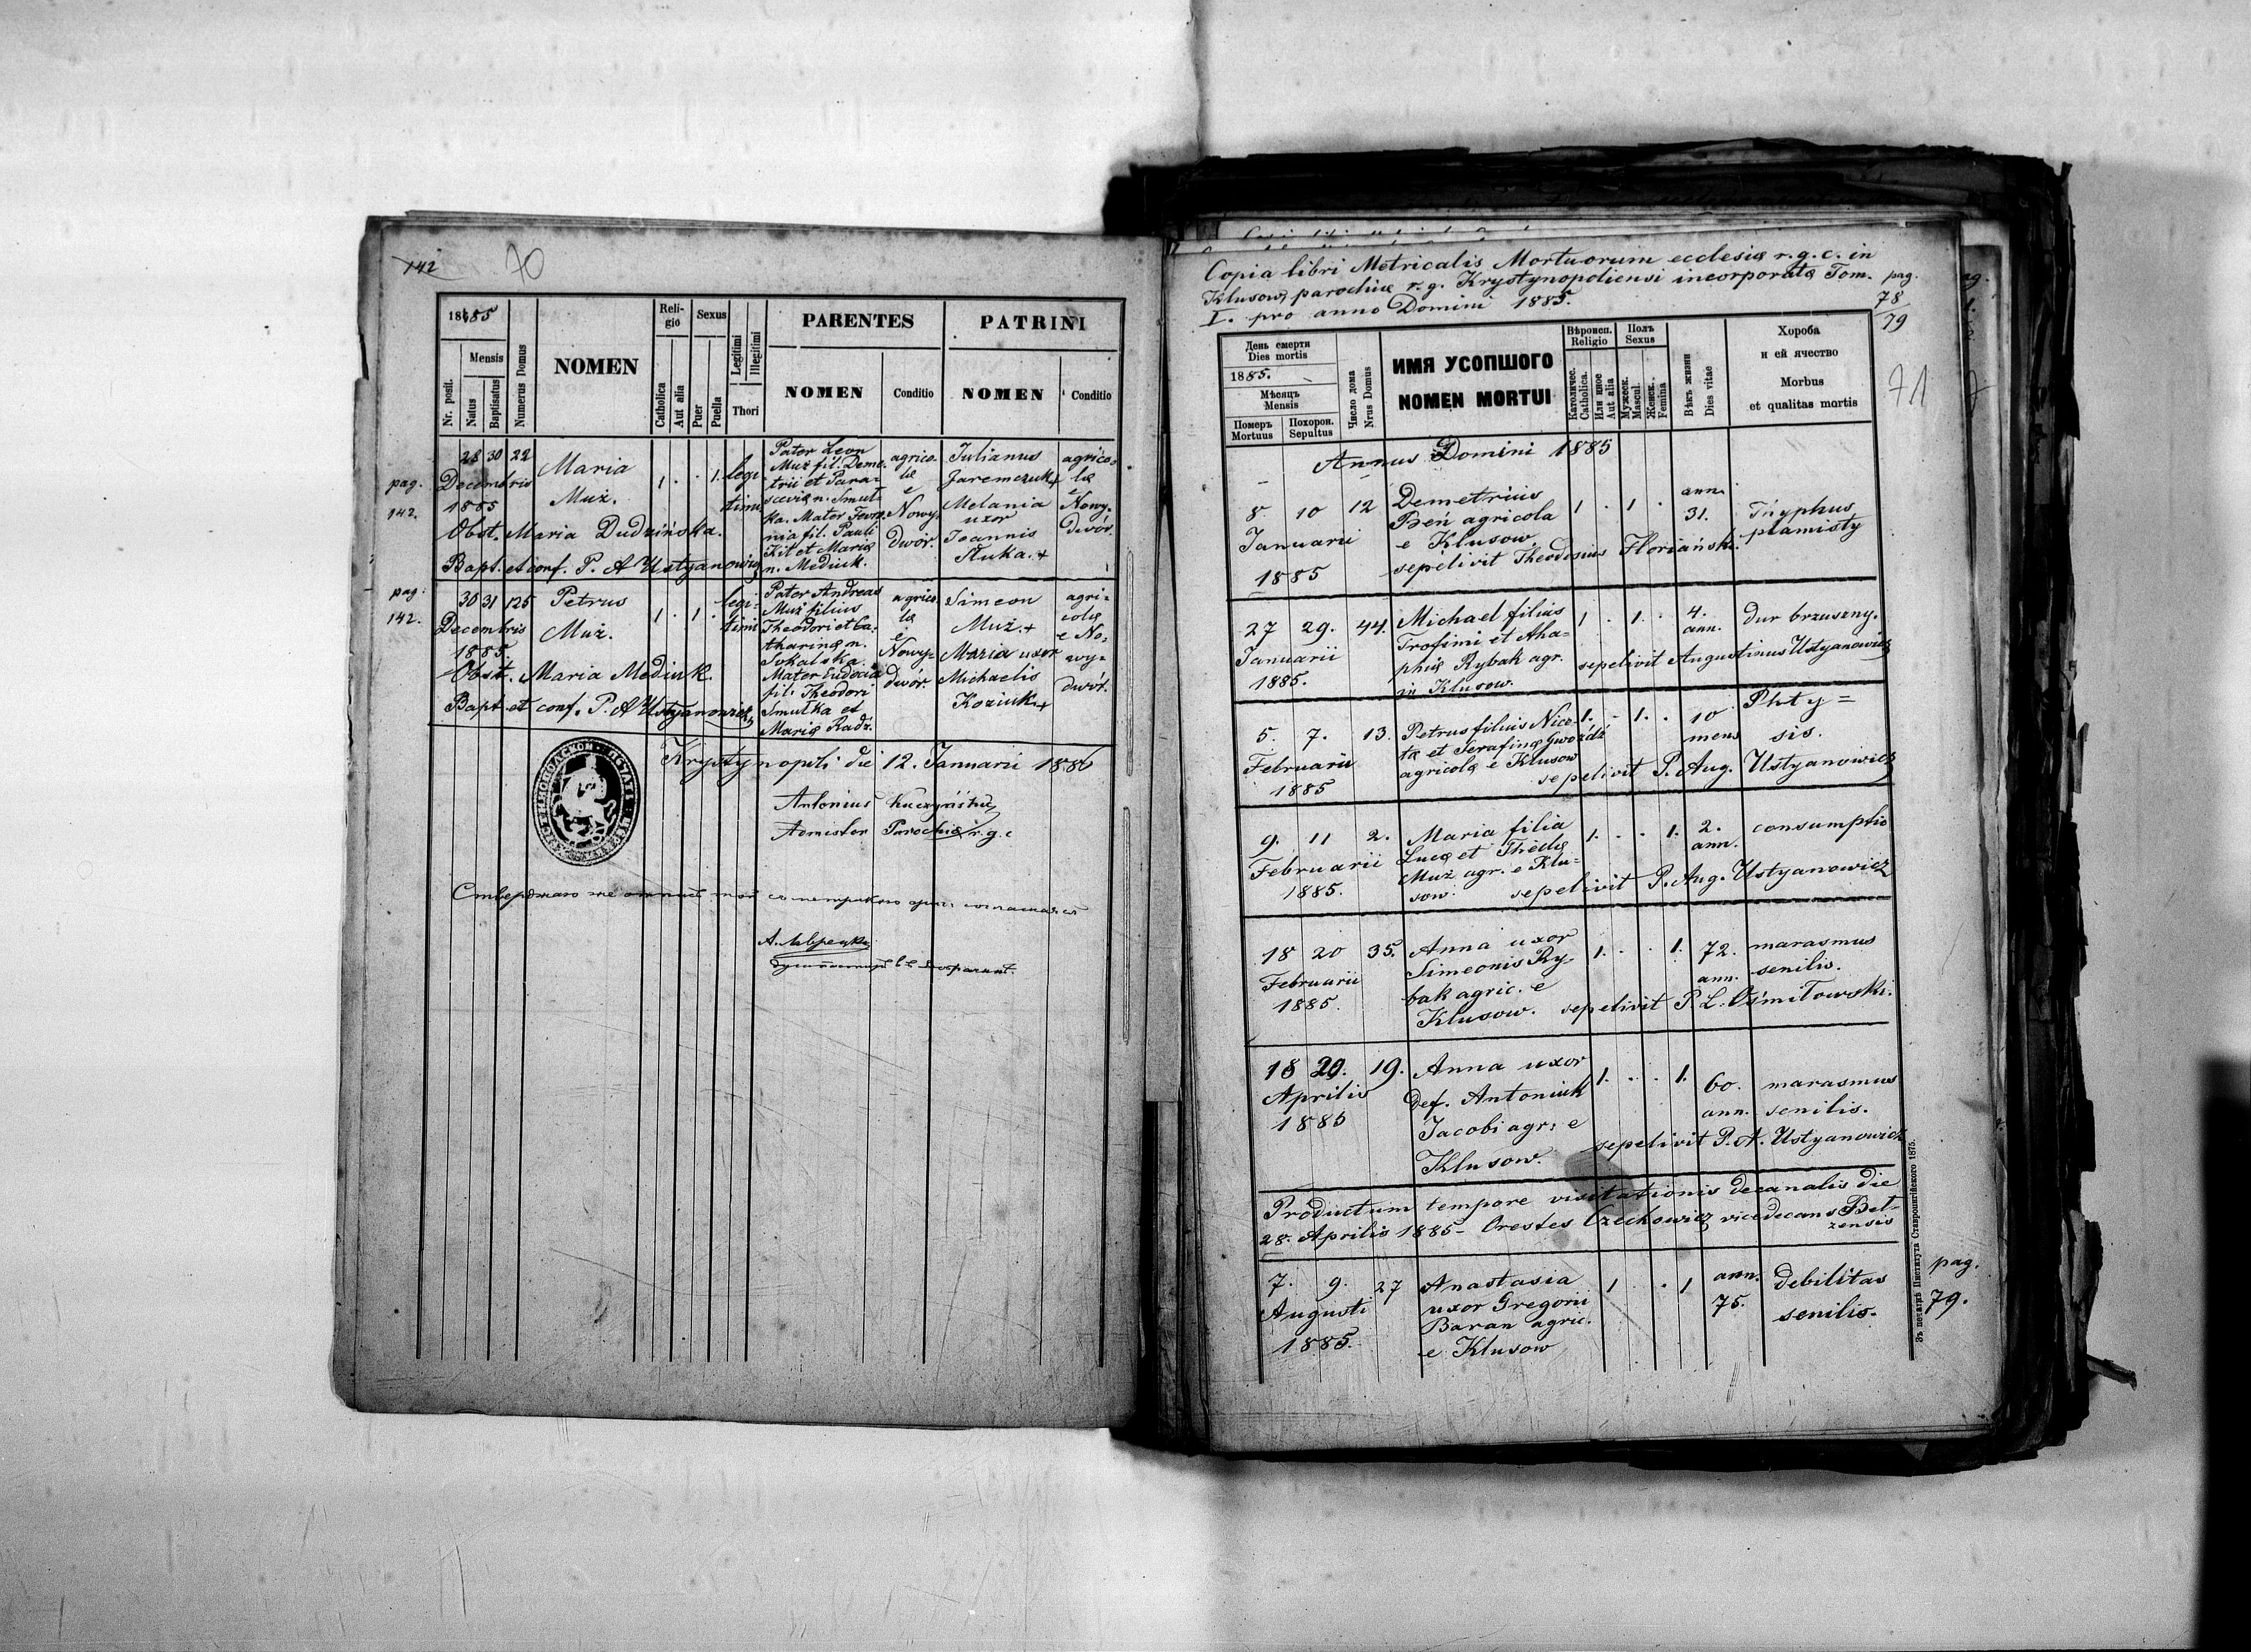 142
70
1885
Nr. posit.
Mensis
Natus
Baptisatus
Numerus Domus
NOMEN
Religio
Catholica
Aut alia
Sexus
Puer
Puella
Legitimi
Illegitimi
Thori
PARENTES
NOMEN
Conditio
PATRINI
NOMEN
Conditio
pag.
142.
28 30 22
Decembris
1885
Maria
Muż.
1 . . 1.
legi
timi
Pater Leon
Muż fil. Deme-
trii et Para-
sceviæ n. Smut-
ka. Mater Fevro-
nia fil. Pauli
Kit et Mariæ
n. Mediuk.
agrico-
la
e
Nowy-
Dwór.
Julianus
Jaremczuk +
Melania
uxor
Joannis
Sługa. +
agrico-
la
e
Nowy-
Dwór.
Obst. Maria Dudzińska.
Bapt. et conf. P. A Ustyanowicz
pag.
142.
30 31 125
Decembris
1885.
Petrus
Muż.
1 . 1 .
legi-
timi
Pater Andreas
Muż filius
Theodori et Ca-
tharinæ n.
Sokalska.
Mater Eudocia
fil. Theodori
Smutka et
Mariæ Radż.
agrico-
la
e
Nowy-
dwór.
Simeon
Muż. +
Maria uxor
Michaelis
Koziuk +
agri-
colæ
e No-
wy-
dwór.
Obst. Maria Mediuk.
Bapt. et conf. P. A Ustyanowicz
Krystynopoli die 12. Januarii 1886
Antonius
Admister Parochiæ r. g. c
Copia libri Metricalis Mortuorum ecclesiæ r. g. c. in
Klusow, parochiæ r. g. Krystynopoliensi incorporatæ Tom.
I. pro anno Domini 1885.
pag.
78
79
71
День смерти
Dies mortis
1885.
Мѣсяцъ
Mensis
Померъ
Mortuus
Похорон.
Sepultus
Число дома
Nrus Domus
ИМЯ УСОПШОГО
NOMEN MORTUI
Вѣроисп.
Religio
Католичес.
Catholica.
Или иное
Aut alia
Полъ
Sexus
Мужеск.
Mascul.
Женск.
Femina
Вѣкъ жизни
Dies vitae
Хороба
и ей ячество
Morbus
et qualitas mortis
Annus Domini 1885
8 10 12
Januarii
1885
Demetrius
Beń agricola
e Klusow.
1 . 1 .
ann.
31.
Tryphus
plamisty
sepelivit Theodosius Floriański.
27 29. 44.
Januarii
1885.
Michael filius
Trofimi et Aha-
phiæ Rybak agr.
in Klusow.
1 . 1. .
4.
ann.
dur brzuszny.
sepelivit Augustinus Ustyanowicz
5. 7. 13.
Februarii
1885
Petrus filius Nico-
tæ et Serafinæ Gwoźdź
agricolæ e Klusow
1. . 1. .
10
mens
Phty=
sis.
sepelivit P. Aug. Ustyanowicz
9. 11 2.
Februarii
1885.
Maria filia
Lucæ et Theclæ
Muż agr. e Klu-
sow.
1. . . 1.
2.
ann.
consumptio
sepelivit P. Aug. Ustyanowicz
18 20 35.
Februarii
1885.
Anna uxor
Simeonis Ry-
bak agric. e
Klusow.
1. . . 1.
72.
ann.
marasmus
senilis.
sepelivit P. L. Ośmiłowski.
18 20. 19.
Aprilis
1885
Anna uxor
def. Antoniuk
Jacobi agr. e
Klusow.
1. . . 1.
60.
ann.
marasmus
senilis.
sepelivit P. A. Ustyanowicz
Productum tempore visitationis decanalis die
28. Aprilis 1885 – Orestes Czechowicz vicedecans Bel-
zensis
7. 9. 27
Augusti
1885.
Anastasia
uxor Gregorii
Baran agric.
e Klusow
1 . . 1
ann.
75.
debilitas
senilis.
pag.
79.
Зъ печатнѣ Института Ставропигійского 1875.